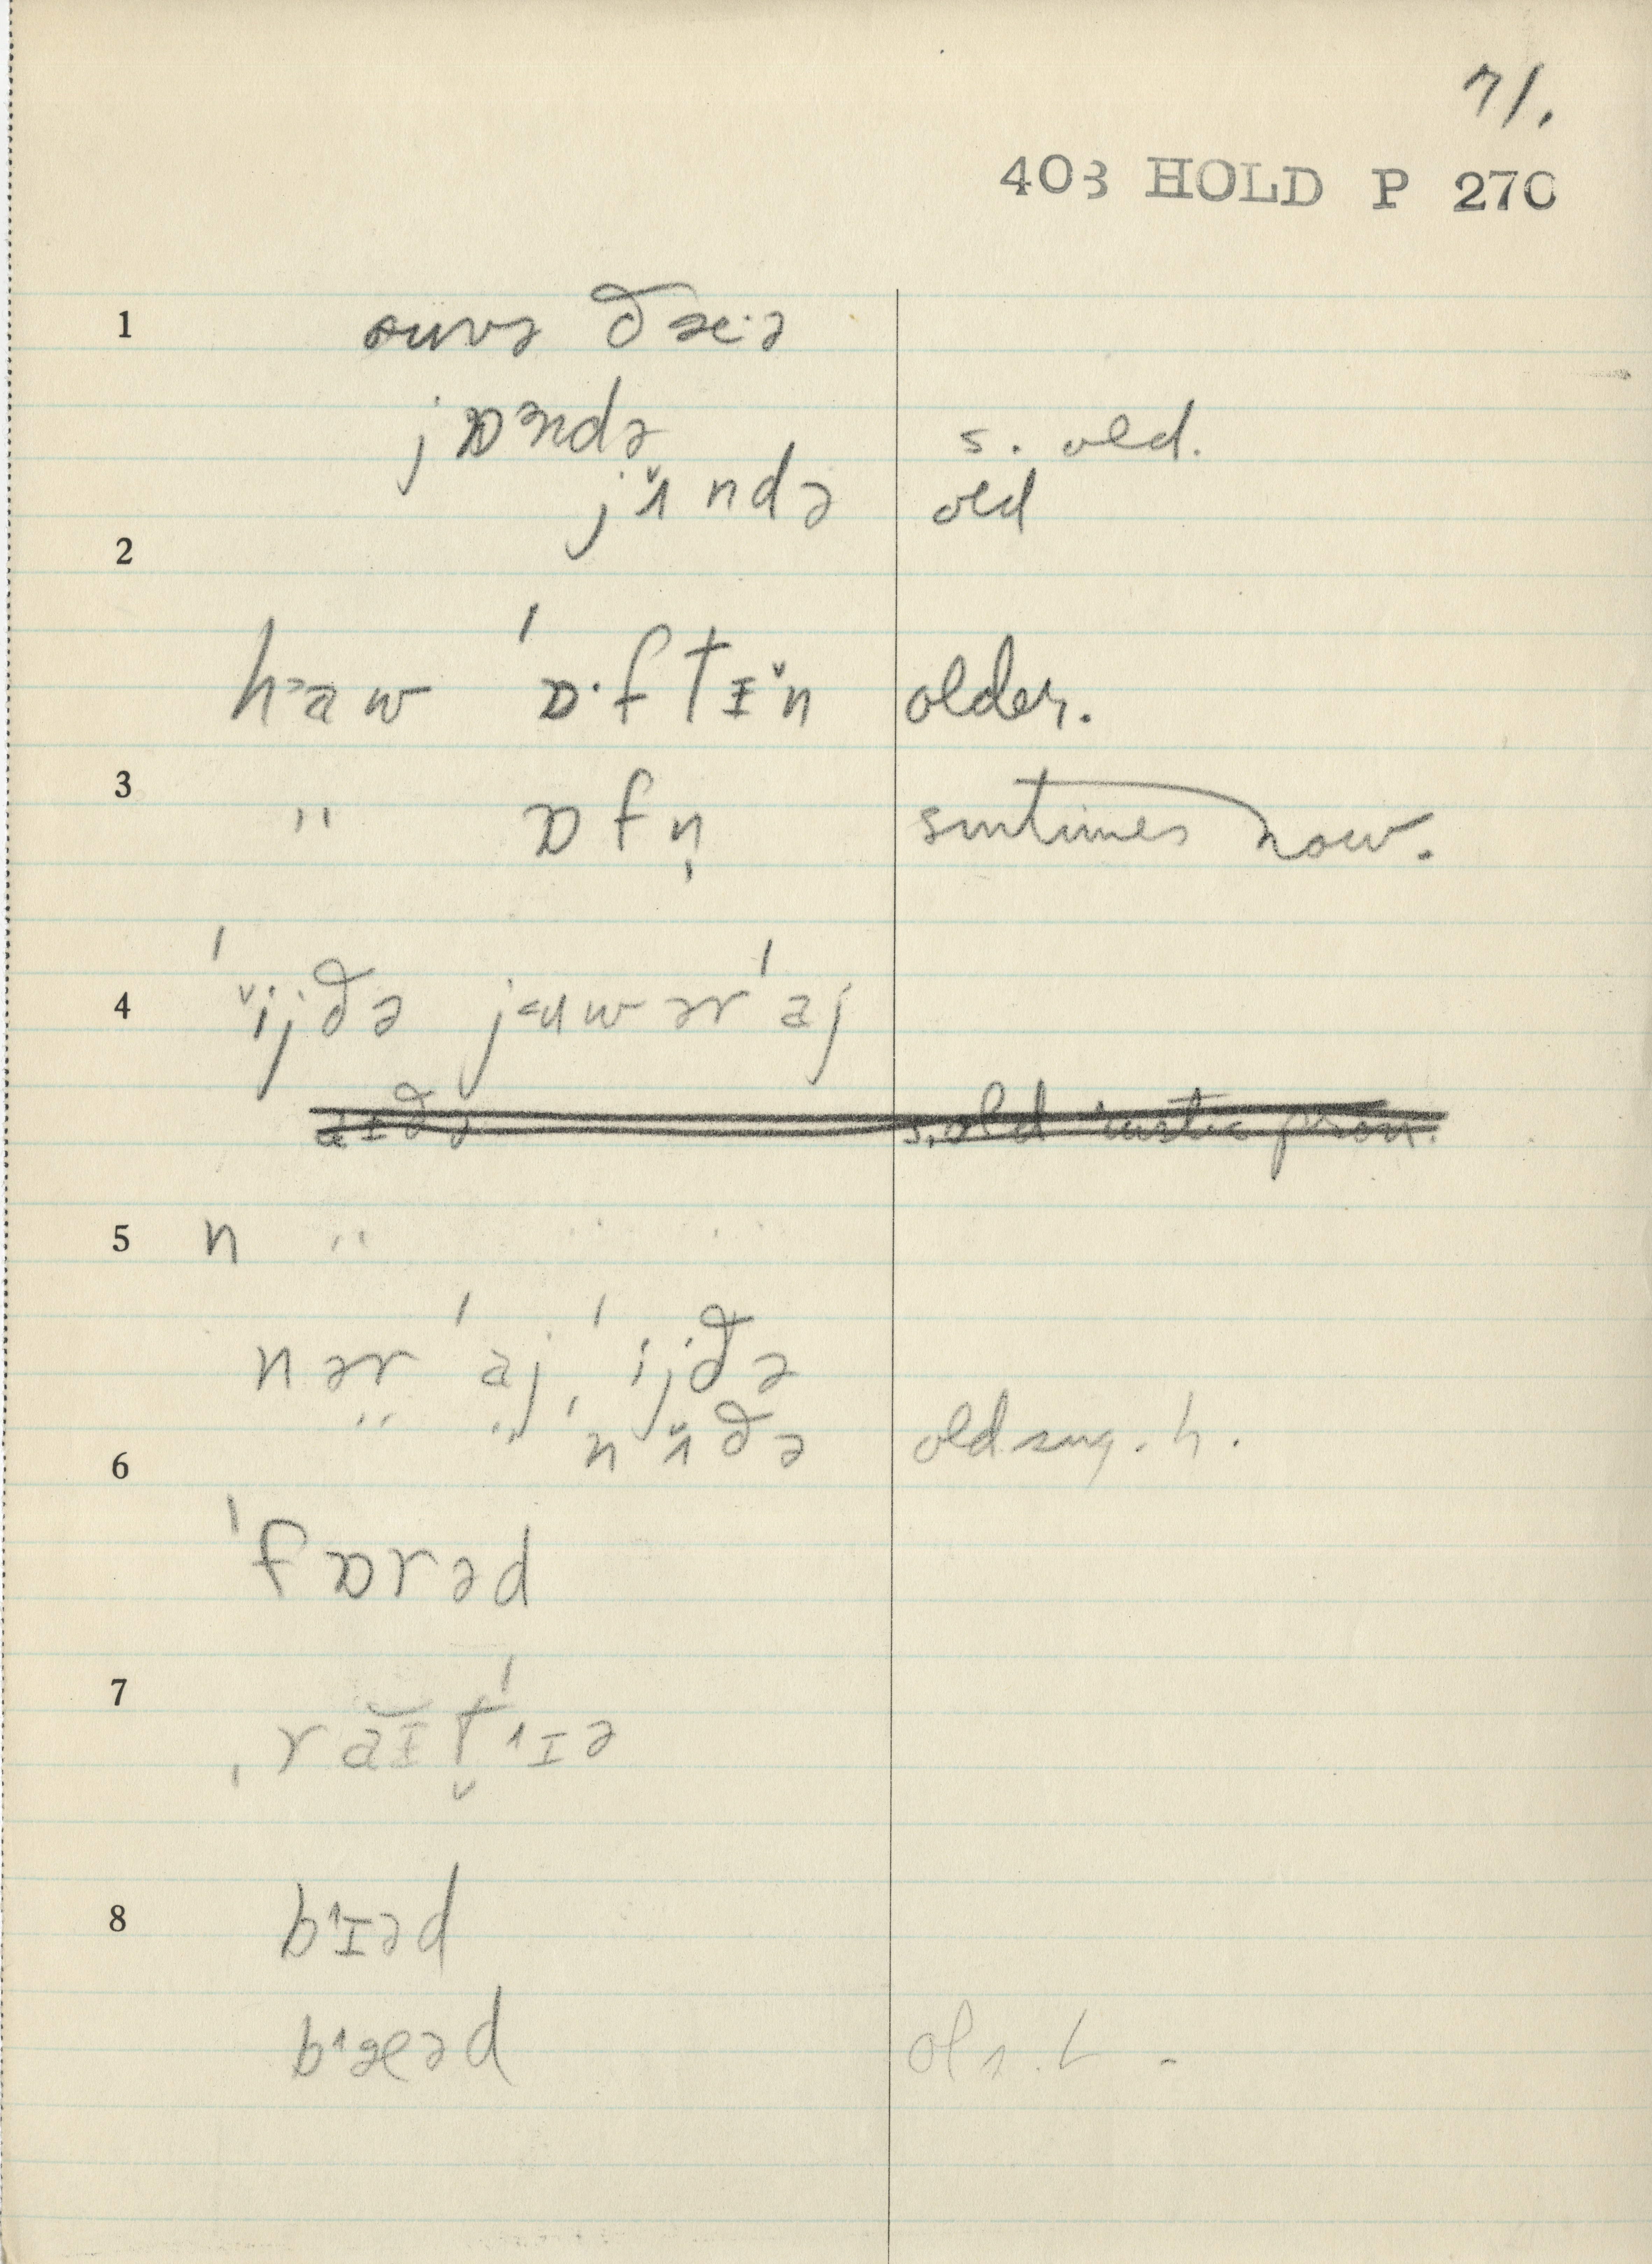 71.
403 HOLD P 270
1 ouvə ðæ·ə
jɒᵊndə s. old.
jɪ̆ndə old
2
hᵊaw ˈɒ·ftɪ̆n older.
3 " ɒfn̩ smtimes now.
4 ˈĭjðə jᵊɑwərˈaj
s. old rustic pron.
5 n "
nərˈaj ˈijðə
6 " " ˈnɪ̆ðə old sug. h.
ˈfɒrəd
7 ˌrăɪt̬ˈɪə
8 bˈɪəd
bˈæəd